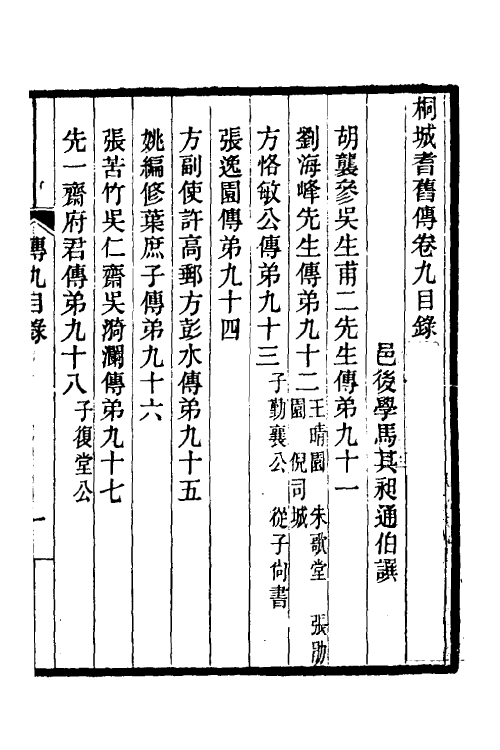 桐城耆舊傳卷九目錄
邑後學馬其昶通伯譔
胡襲參吳生甫二先生傳弟九十一
劉海峰先生傳弟九十二 王晴園 朱歌堂 張勛園 倪司城
方恪敏公傳弟九十三 子勤襄公 從子尙書
張逸園傳弟九十四
方副使許高郵方彭水傳弟九十五
姚編修葉庶子傳弟九十六
張苦竹吳仁齋吳漪瀾傳弟九十七
先一齋府君傳弟九十八 子復堂公
傳九目錄 一